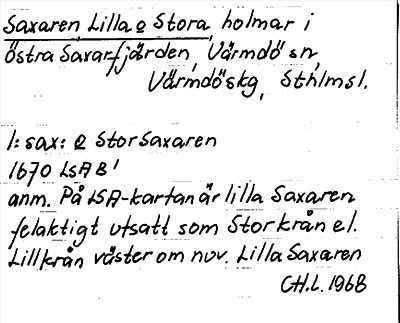 Saxaren, Lilla o Stora, holmar i
östra Saxarfjärden, Värmdö sn,
Värmdö skg, Sthlmsl.
l: sax: o Stor Saxaren
1670 LSA B¹
anm. På LSA-kartan är lilla Saxaren
felaktigt utsatt som Storkrån el.
Lillkrån väster om nuv. Lilla Saxaren
CH.L. 1968